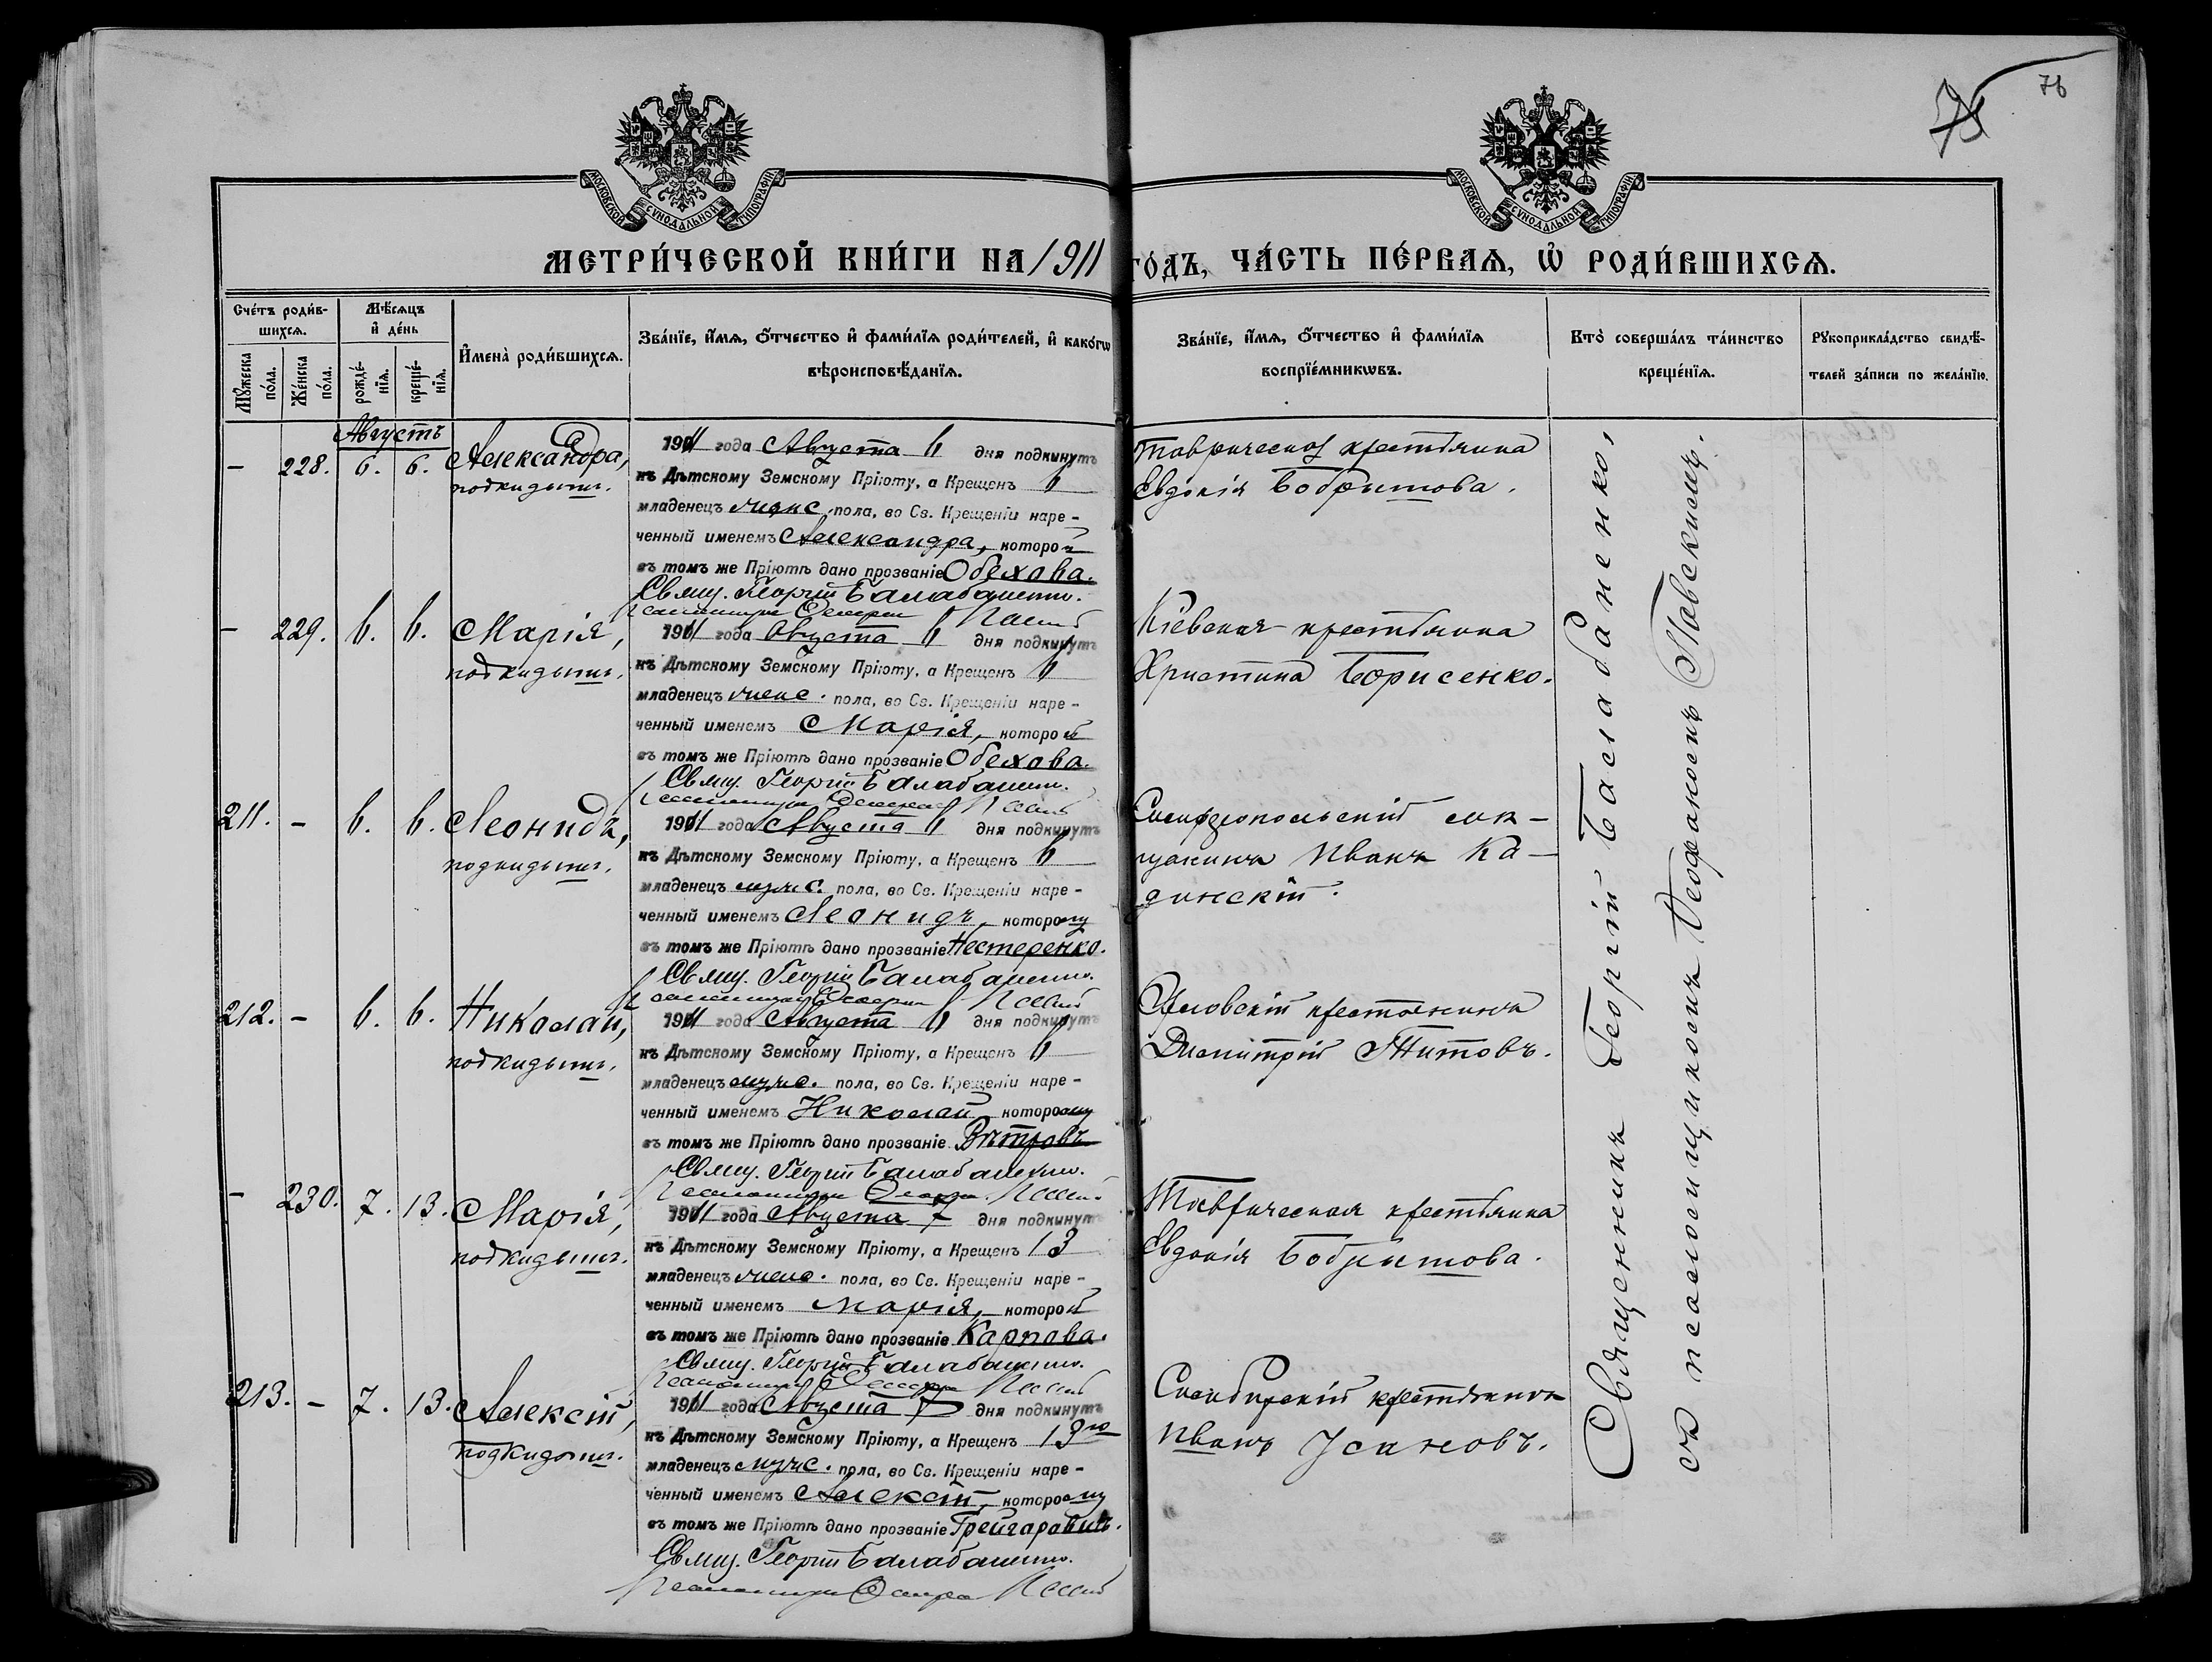 75
76
МОСКОВСКОЙ СѴНОДАЛЬНОЙ ТИПОГРАФІИ
МОСКОВСКОЙ СѴНОДАЛЬНОЙ ТИПОГРАФІИ
МЕТРИ́ЧЕСКОЙ КНИ́ГИ НА 1911 ГО́ДЪ, ЧА́СТЬ ПЕ́РВАѦ, Ѡ҆ РОДИ́ВШИХСѦ.
Сче́тъ роди́в-
шихсѧ.
Мꙋ́жеска по́ла.
Же́нска по́ла.
Мѣ́сѧцъ и҆ де́нь
рожде́-нїѧ.
креще́-нїѧ.
И҆мена̀ роди́вшихсѧ.
Зва́нїе, и҆́мѧ, ѻ҆́тчество и҆ фами́лїѧ роди́телей, и҆ како́гѡ
вѣроисповѣ́данїѧ.
Зва́нїе, и҆́мѧ, ѻ҆́тчество и҆ фами́лїѧ
воспрїе́мникѡвъ.
Кто̀ соверша́лъ та́инство
креще́нїѧ.
Рꙋкоприкла́дство свидѣ́-
телей за́писи по жела́нїю.
Августъ
– 228. 6. 6. Александра,
подкидышъ.
1911 года Августа 6 дня подкинутъ
къ Дѣтскому Земскому Пріюту, а Крещенъ 6
младенецъ женс. пола, во Св. Крещеніи наре-
ченный именемъ Александра, которой
въ томъ же Пріютѣ дано прозваніе Обехова.
Свящ. Георгій Балабаненко.
Таврическая крестьянка
Евдокія Бобритова.
– 229. 6. 6. Марія,
подкидышъ.
1911 года Августа 6 дня подкинутъ
къ Дѣтскому Земскому Пріюту, а Крещенъ 6
младенецъ женс. пола, во Св. Крещеніи наре-
ченный именемъ Марія, которой
въ томъ же Пріютѣ дано прозваніе Обехова.
Свящ. Георгій Балабаненко.
Кіевская крестьянка
Христина Борисенко.
211. – 6. 6. Леонидъ,
подкидышъ.
1911 года Августа 6 дня подкинутъ
къ Дѣтскому Земскому Пріюту, а Крещенъ 6
младенецъ мужс. пола, во Св. Крещеніи наре-
ченный именемъ Леонидъ, которому
въ томъ же Пріютѣ дано прозваніе Нестеренко.
Свящ. Георгій Балабаненко.
Симферопольскій мѣ-
щанинъ Иванъ Ка-
динскій.
212. – 6. 6. Николай,
подкидышъ.
1911 года Августа 6 дня подкинутъ
къ Дѣтскому Земскому Пріюту, а Крещенъ 6
младенецъ мужс. пола, во Св. Крещеніи наре-
ченный именемъ Николай, которому
въ томъ же Пріютѣ дано прозваніе Вѣтровъ
Свящ. Георгій Балабаненко.
Орловскій крестьянинъ
Димитрій Титовъ.
– 230. 7. 13. Марія,
подкидышъ.
1911 года Августа 7 дня подкинутъ
къ Дѣтскому Земскому Пріюту, а Крещенъ 13
младенецъ женс. пола, во Св. Крещеніи наре-
ченный именемъ Марія, которой
въ томъ же Пріютѣ дано прозваніе Карпова.
Свящ. Георгій Балабаненко.
Таврическая крестьянка
Евдокія Бобритова.
213. – 7. 13. Алексѣй,
подкидышъ.
1911 года Августа 7 дня подкинутъ
къ Дѣтскому Земскому Пріюту, а Крещенъ 13го
младенецъ мужс. пола, во Св. Крещеніи наре-
ченный именемъ Алексѣй, которому
въ томъ же Пріютѣ дано прозваніе
Свящ. Георгій Балабаненко.
Симбирскій крестьянинъ
Иванъ Усановъ.
Священникъ Георгій Балабаненко,
съ псаломщикомъ Павскимъ.